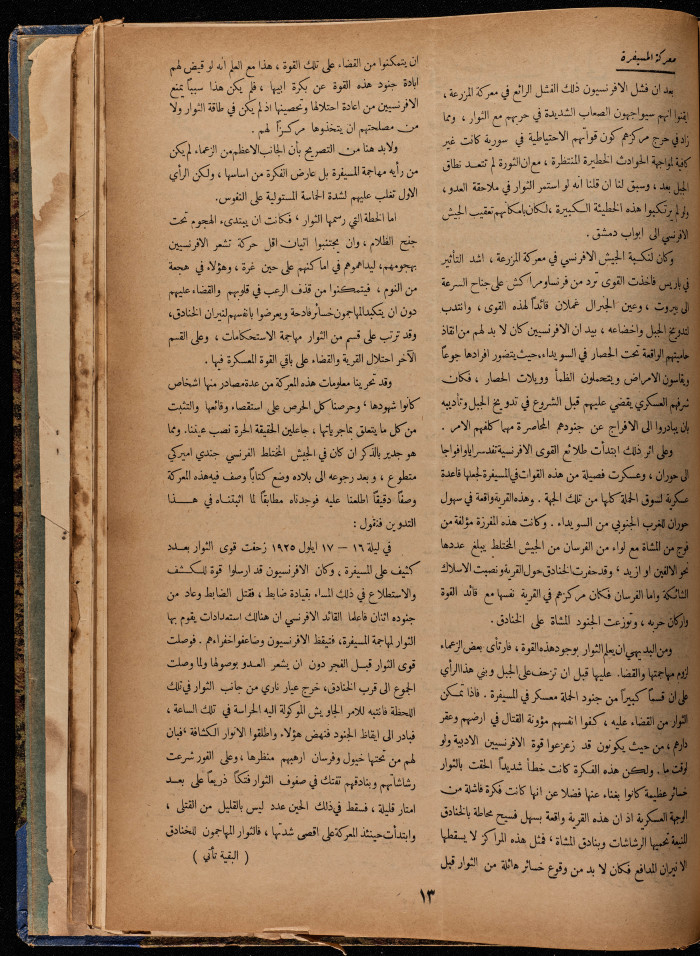 معركة المسيفرة
بعد ان فشل الافرنسيون ذلك الفشل الرائع في معركة المزرعة ،
ايقنوا انهم سيواجهون الصعاب الشديدة في حربهم مع الثوار ، ومما
زاد في حرج مركزهم كون قواتهم الاحتياطية في سورية كانت غير
كافية لمواجهة الحوادث الخطيرة المنتظرة ، مع ان الثورة لم تتعد نطاق
الجبل بعد ، وسبق لنا ان قلنا انه لو استمر الثوار في ملاحقة العدو ،
ولو لم يرتكبوا هذه الخطيئة الكبيرة ، لكان بامكانهم تعقيب الجيش
الافرنسي الى ابواب دمشق .
وكان لنكسة الجيش الافرنسي في معركة المزرعة ، اشد التأثير
في باريس فاخذت القوى ترد من فرنسا ومراكش على جناح السرعة
الى بيروت ، وعين الجنرال غملان قائداً لهذه القوى ، وانتدب
لتدويخ الجبل واخضاعه ، بيد ان الافرنسيين كان لا بد لهم من انقاذ
حاميتهم الواقعة تحت الحصار في السويداء، حيث يتضور افرادها جوعاً
ويقاسون الامراض ويتحملون الظمأ وويلات الحصار ، فكان
شرفهم العسكري يقضي عليهم قبل الشروع في تدويخ الجبل وتأديبه
بان يبادروا الى الافراج عن جنودهم المحاصرة مهما كلفهم الامر .
وعلى اثر ذلك ابتدأت طلائع القوى الافرنسية تفد سرايا وافواجا
الى حوران ، وعسكرت فصيلة من هذه القوات في المسيفرة لجعلها قاعدة
عسكرية لسوق الحملة كلها من تلك الجهة . وهذه القرية واقعة في سهول
حوران للغرب الجنوبي من السويداء . وكانت هذه المفرزة مؤلفة من
فوج من المشاة مع لواء من الفرسان من الجيش المختلط يبلغ عددها
نحو الالفين او ازيد ، وقد حفرت الخنادق حول القرية ونصبت الاسلاك
الشائكة واما الفرسان فكان مركزهم في القرية نفسها مع قائد القوة
واركان حربه ، وتوزعت الجنود المشاة على الخنادق .
ومن البديهي ان يعلم الثوار بوجود هذه القوة ، فارتأى بعض الزعماء
لزوم مهاجمتها والقضاء عليها قبل ان تزحف على الجبل وبني هذا الرأي
على ان قسماً كبيراً من جنود الحملة معسكر في المسيفرة . فاذا تمكن
الثوار من القضاء عليه ، كفوا انفسهم مؤونة القتال في ارضهم وعقر
دارهم ، من حيث يكونون قد زعزعوا قوة الافرنسيين الادبية ولو
لوقت ما . ولكن هذه الفكرة كانت خطأ شديداً الحقت بالثوار
خسائر عظيمة كانوا بغناء عنها فضلا عن انها كانت فكرة فاشلة من
الوجهة العسكرية اذ ان هذه القرية واقعة بسهل فسيح محاطة بالخنادق
المنيعة تحميها الرشاشات وبنادق المشاة ، فمثل هذه المراكز لا يسقطها
الا نيران المدافع فكان لا بد من وقوع خسائر هائلة من الثوار قبل
ان يتمكنوا من القضاء على تلك القوة ، هذا مع العلم انه لو قيض لهم
ابادة جنود هذه القوة عن بكرة ابيها ، فلم يكن هذا سبباً يمنع
الافرنسيين من اعادة احتلالها وتحصينها اذ لم يكن في طاقة الثوار ولا
من مصلحتهم ان يتخذوها مركزاً لهم .
ولابد هنا من التصريح بأن الجانب الاعظم من الزعماء لم يكن
من رأيه مهاجمة المسيفرة بل عارض الفكرة من اساسها ، ولكن الرأي
الاول تغلب عليهم لشدة الحماسة المستولية على النفوس .
اما الخطة التي رسمها الثوار ، فكانت ان يبتدىء الهجوم تحت
جنح الظلام ، وان يجتنبوا اتيان اقل حركة تشعر الافرنسيين
بهجومهم ، ليداهموهم في اماكنهم على حين غرة ، وهؤلاء في هجعة
من النوم ، فيتمكنوا من قذف الرعب في قلوبهم والقضاء عليهم
دون ان يتكبد المهاجمون خسائر فادحة ويعرضوا بانفسهم لنيران الخنادق،
وقد ترتب على قسم من الثوار مهاجمة الاستحكامات ، وعلى القسم
الآخر احتلال القرية والقضاء على باقي القوة المعسكرة فيها .
وقد تحرينا معلومات هذه المعركة من عدة مصادر منها اشخاص
كانوا شهودها ، وحرصنا كل الحرص على استقصاء وقائعها والتثبت
من كل ما يتعلق بماجرياتها ، جاعلين الحقيقة الحرة نصب عيننا . ومما
هو جدير بالذكر ان كان في الجيش المختلط الفرنسي جندي اميركي
متطوع ، وبعد رجوعه الى بلاده وضع كتاباً وصف فيه هذه المعركة
وصفاً دقيقاً اطلعنا عليه فوجدناه مطابقاً لما اثبتناه في هذا
التدوين فنقول :
في ليلة ١٦ – ١٧ ايلول ١٩٢٥ زحفت قوى الثوار بعدد
كثيف على المسيفرة ، وكان الافرنسيون قد ارسلوا قوة للكشف
والاستطلاع في ذلك المساء بقيادة ضابط ، فقتل الضابط وعاد من
جنوده اثنان فاعلما القائد الافرنسي ان هنالك استعدادات يقوم بها
الثوار لمهاجمة المسيفرة، فتيقظ الافرنسيون وضاعفوا خفراءهم . فوصلت
قوى الثوار قبل الفجر دون ان يشعر العدو بوصولها ولما وصلت
الجموع الى قرب الخنادق ، خرج عيار ناري من جانب الثوار في تلك
اللحظة فانتبه للامر الجاويش الموكولة اليه الحراسة في تلك الساعة ،
فبادر الى ايقاظ الجنود فنهض هؤلاء واطلقوا الانوار الكشافة ، فبان
لهم من تحتها خيول وفرسان ارهبهم منظرها ، وعلى الفور شرعت
رشاشاتهم وبنادقهم تفتك في صفوف الثوار فتكاً ذريعاً على بعد
امتار قليلة ، فسقط في ذلك الحين عدد ليس بالقليل من القتلى ،
وابتدأت حينئذ المعركة على اقصى شدتها ، فالثوار المهاجمون للخنادق
( البقية تأتي )
١٣